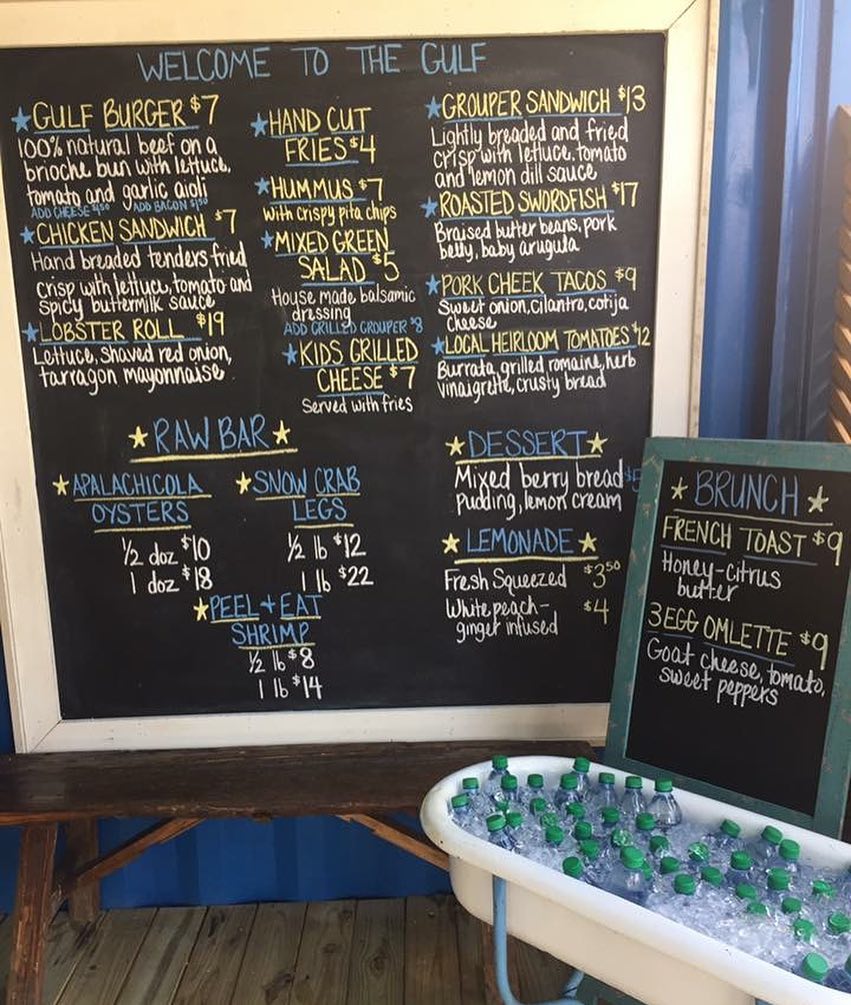 WELCOME TO THE GULF
GULF BURGER $7
100% natural beef on a
brioche bun with lettuce,
tomato and garlic aioli
ADD CHEESE $1.50 ADD BACON $1.50
CHICKEN SANDWICH $7
Hand breaded tenders fried
crisp with lettuce, tomato and
spicy buttermilk sauce
LOBSTER ROLL $19
Lettuce, shaved red onion,
tarragon mayonnaise
HAND CUT
FRIES $4
HUMMUS $7
with crispy pita chips
MIXED GREEN
SALAD $5
House made balsamic
dressing
ADD GRILLED GROUPER $8
KIDS GRILLED
CHEESE $7
Served with fries
GROUPER SANDWICH $13
Lightly breaded and fried
crisp with lettuce, tomato
and lemon dill sauce
ROASTED SWORDFISH $17
Braised butter beans, pork
belly, baby arugula
PORK CHEEK TACOS $9
Sweet onion, cilantro, cotija
cheese
LOCAL HEIRLOOM TOMATOES $12
Burrata, grilled romaine, herb
vinaigrette, crusty bread
RAW BAR
APALACHICOLA
OYSTERS
1/2 doz $10
1 doz $18
SNOW CRAB
LEGS
1/2 lb $12
1 lb $22
PEEL + EAT
SHRIMP
1/2 lb $8
1 lb $14
DESSERT
Mixed berry bread $5
pudding, lemon cream
LEMONADE
Fresh Squeezed $3.50
White peach- $4
ginger infused
BRUNCH
FRENCH TOAST $9
Honey-citrus
butter
3 EGG OMLETTE $9
Goat cheese, tomato,
sweet peppers